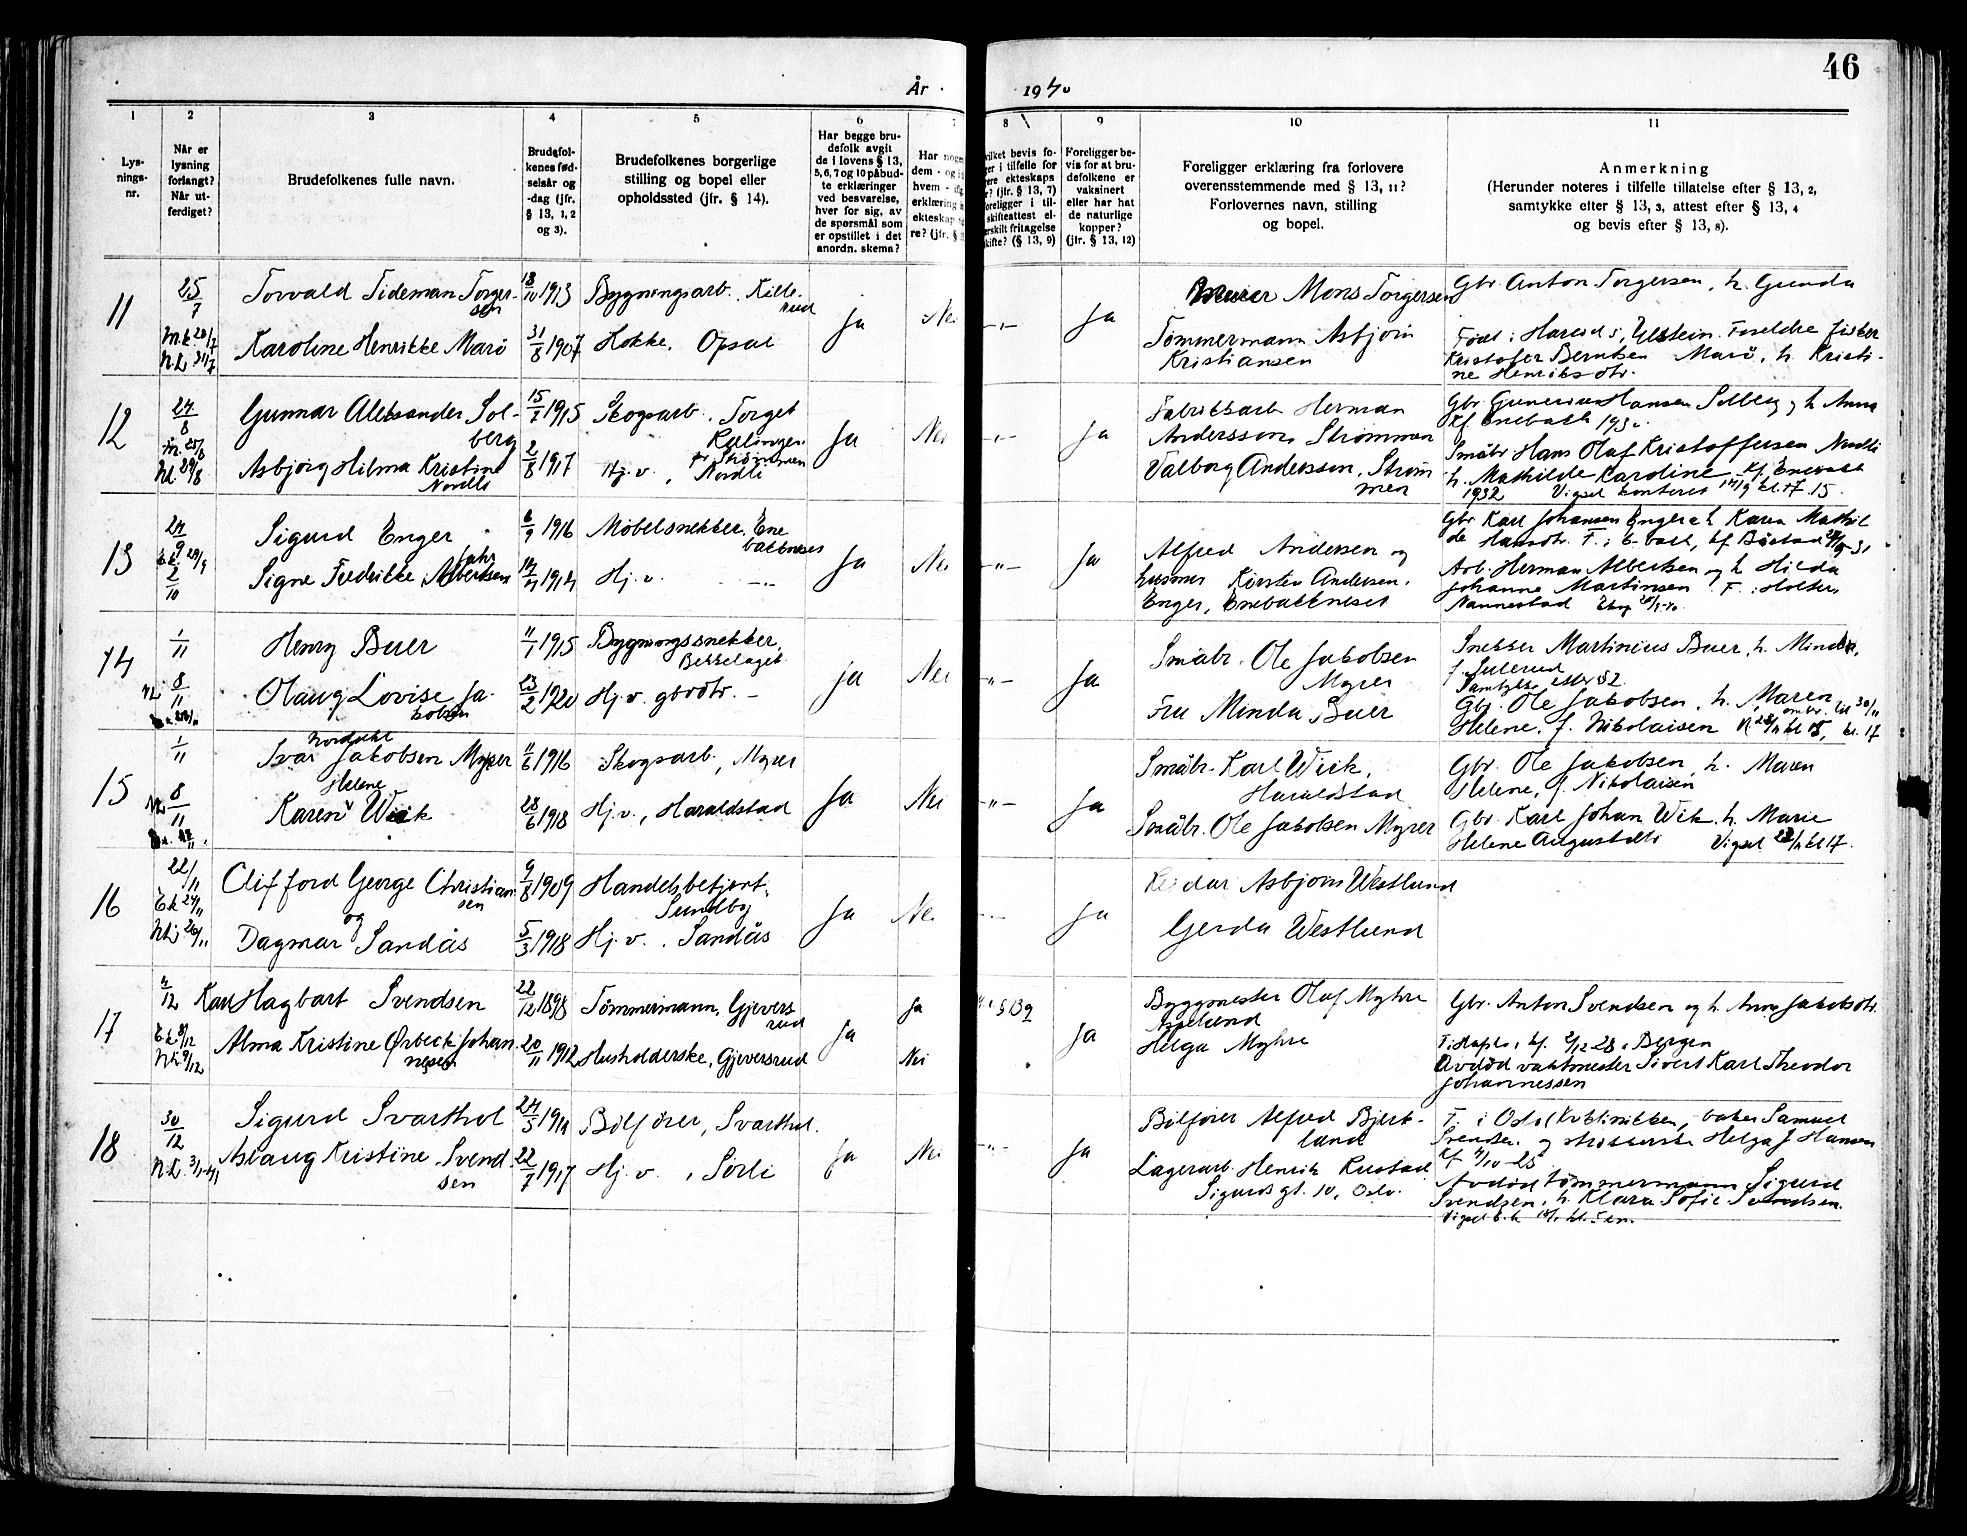 46
År 1940
1 2 3 4 5 6 7 8 9 10 11
Lys-
nings-
nr.
Når er
lysning
forlangt?
Når ut-
ferdiget?
Brudefolkenes fulle navn.
Brudefol-
kenes fød-
selsår og
-dag (jfr.
§ 13, 1, 2
og 3).
Brudefolkenes borgerlige
stilling og bopel eller
opholdssted (jfr. § 14).
Har begge bru-
defolk avgit
de i lovens § 13,
5, 6, 7 og 10 påbud-
te erklæringer
ved besvarelse,
hver for sig, av
de spørsmål som
er opstillet i det
anordn. skema?
Har nogen
dem - og i
hvem -
erklæring
ekteskap
re? (jfr. §
vilket bevis fo-
er i tilfelle for
ere ekteskaps
? (jfr. § 13, 7)
oreligger i til-
skifteattest el-
erskilt fritagelse
kifte? (§ 13, 9)
Foreligger be-
vis for at bru-
defolkene er
vaksinert
eller har hat
de naturlige
kopper?
(jfr. § 13, 12)
Foreligger erklæring fra forlovere
overensstemmende med § 13, 11?
Forlovernes navn, stilling
og bopel.
Anmerkning
(Herunder noteres i tilfelle tillatelse efter § 13, 2,
samtykke efter § 13, 3, attest efter § 13, 4
og bevis efter § 13, 8).
11 25/7 Torvald Tideman Torger-
sen 18/10 1913 Bygningsarb. Kille-
rud Ja Nei -"- Ja Murer Mons Torgersen Gbr Anton Torgersen, h. Gunda
Karoline Henrikke Marö 31/8 1907 Kokke, Opsal
Tømmermann Asbjörn
Kristiansen
Född i Hareid s, Ulstein. Foreldre fisker
Kristofer Berntsen Marö, h. Kristi-
ne Henriksdtr.
12 24/8 Gunnar Aleksander Sol-
berg 15/7 1915 Skogsarb. Torget
Rælingen
pr Strömmen Ja Nei -"- Ja
Asbjörg Hilma Kristine
Nordli 2/8 1917 Hj. v., Nordli
Fabrikkarb Herman
Andersson Strömmen
Valborg Andersson, Ström
men
Hansen Solberg og h Anna
Kf Enebakk
Småbr Hans Olaf Kristoffersen Nordli
h. Mathilde Karoline Kf Enebakk
1932 Vigsel kontoret 14/9 kl. 17.15.
13 24/9 Sigurd Enger 6/9 1916 Møbelsnekker, Ene
bakkneset Ja Nei -"- Ja
2/10 Signe Fredrikke Albertsen 1914 Hj. v. -"-
Alfred Andersen og
husmor Kirsten Andersen,
Enger, Enebakkneset
Gbr Karl Johansen Enger & h Karen Mathil
de Hansdtr. F. i E-bakk, kf Båstad
Arb. Herman Albertsen og h Hilda
Johanne Martinsen F. i Holter,
Nannestad
14 1/11 Henry Buer 11/1 1915 Bygningssnekker,
Bekkelaget Ja Nei -"- Ja
8/11 Olaug Lovise Ja-
kobsen 23/2 1920 Hj. v. gbrdtr. -
Småbr. Ole Jakobsen
Myrer
Fru Minda Buer
Snekker Martinius Buer, h. Minda,
f. Sulerud
Samtykke etter § 2
Gbr. Ole Jakobsen, h. Maren
Helene, f. Nikolaisen
15 1/11 Ivar Nordahl Jakobsen Myrer 11/6 1916 Skogsarb., Myrer Ja Nei -"- Ja
8/11 Karen Helene Wiik 28/6 1918 Hj. v., Haraldstad
Småbr. Karl Wiik,
Haraldstad
Småbr. Ole Jakobsen Myrer
Gbr. Ole Jakobsen, h. Maren
Helene, f. Nikolaisen
Gbr. Karl Johan Wik, h. Marie
Helene Augustdtr Vigsel kl 17.
16 22/11 Cliffford George Christian
sen 9/8 1909 Handelsbetjent,
Sundby Ja Nei Ja
og
Dagmar Sandås 5/3 1918 Hj. v., Sandås
Reidar Asbjörn Westlund
Gerda Westlund
17 4/12 Karl Hagbart Svendsen 22/12 1898 Tømmermann, Gjevers
rud Ja Ja § 13 9 Ja
Alma Kristine Ørbeck Johan
nesen 20/11 1912 Husholderske, Gjeversrud Nei
Byggmester Olaf Myhre
Aspelund
Helga Myhre
Gbr. Anton Svendsen og h. Anna Jakobsdtr.
kf. 2/12 28 i Bergen
Avdöd vaktmester Sivert Karl Theodor
Johannessen
18 30/12 Sigurd Svarthol 24/3 1914 Bilförer, Svarthol. Ja Nei Ja
Aslaug Kristine Svend-
sen 22/7 1917 Hj. v., Sörli
Bilförer Alfred Bjerk-
land
Lagerarb. Henrik Rustad
Sigurds gt. 10, Oslo.
F. i Oslo baker Samuel
Svendsen og Helga J Hansen
Kf 4/10-25
Avdöd tömmermann Sigurd
Svendsen, h. Klara Sofie Svendsen.